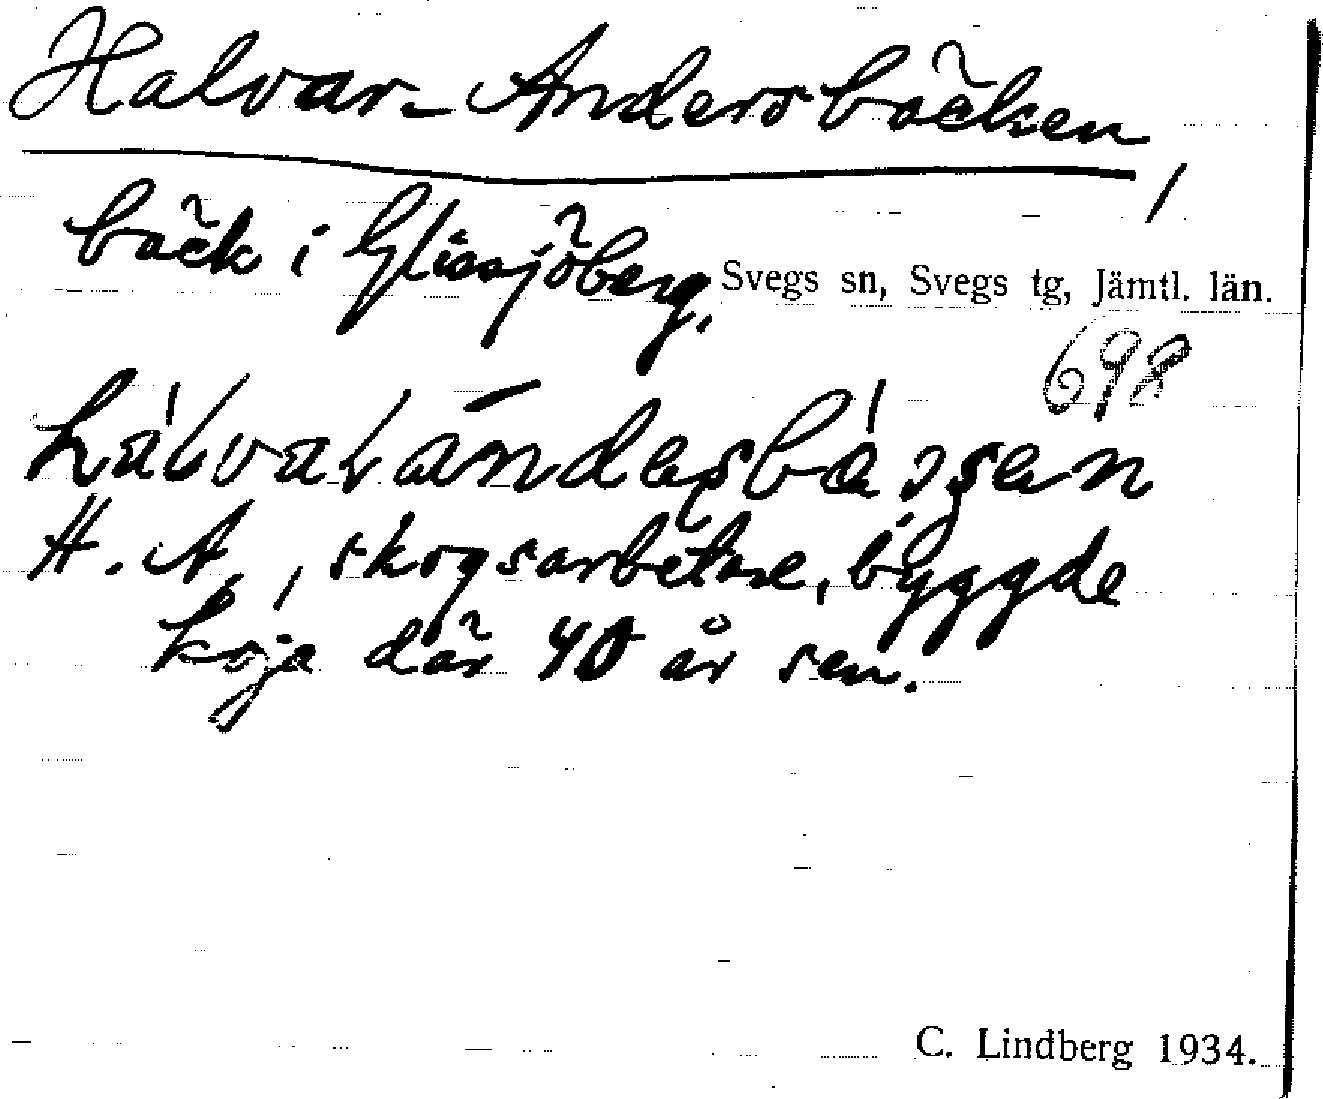 Halvar-Andersbäcken,
bäck i Glissjöberg. Svegs sn, Svegs tg, Jämtl. län.
698
H. A., skogsarbetare, byggde
koja där 40 år sen.
C. Lindberg 1934.